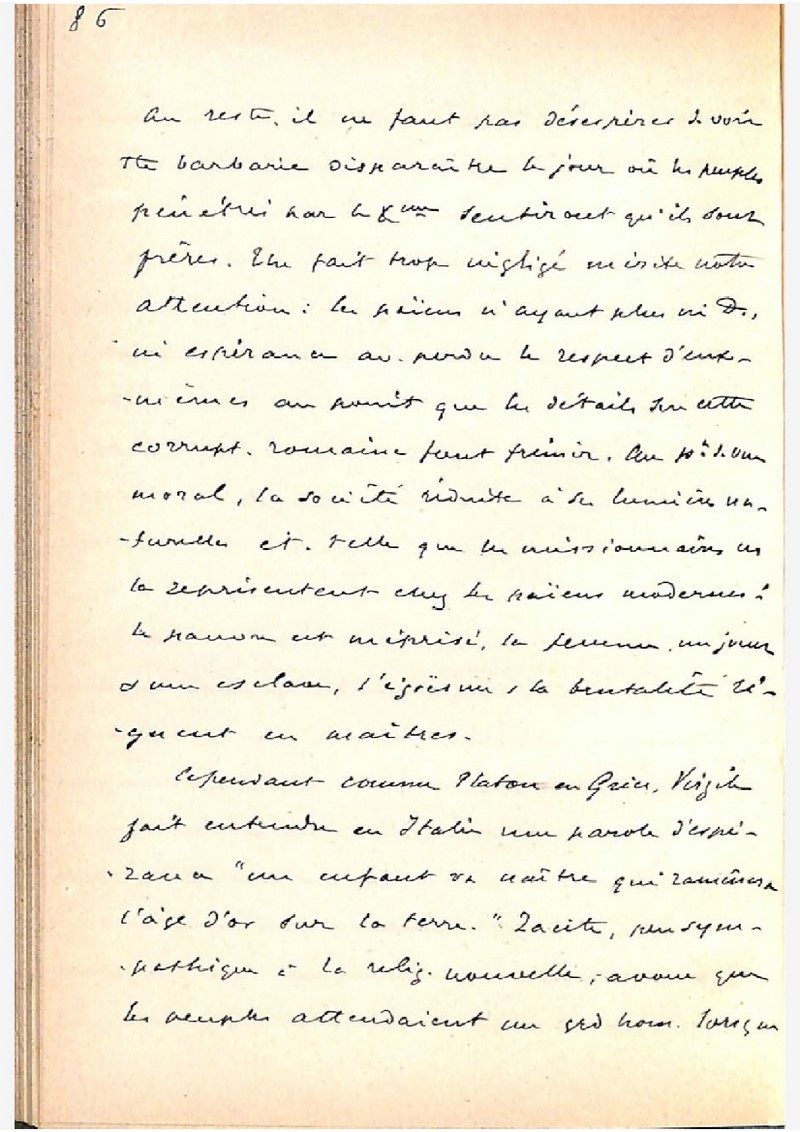 86
Au reste, il ne faut pas désespérer de voir
tte barbarie disparaître le jour où les peuples
pénétrés par le Xme sentiront qu'ils sont
frères. Un fait trop négligé mérite notre
attention : les païens n'ayant plus ni D.,
ni espérance av. perdu le respect d'eux-
-mêmes au point que les détails sur cette
corrupt. romaine font frémir. Au pt de vue
moral, la société réduite à ses lumières na-
-turelles et. telle que les missionnaires ns
la représentent chez les païens modernes :
le pauvre est méprisé, la femme, un jouet
d'un esclave, l'égoïsme, la brutalité rè-
-gnent en maîtres.
Cependant comme Platon en Grèce, Virgile
fait entendre en Italie une parole d'espé-
-rance "un enfant va naître qui ramènera
l'âge d'or sur la terre." Tacite, peu sym-
-pathique à la relig. nouvelle, avoue que
les peuples attendaient un grd hom. lorsque